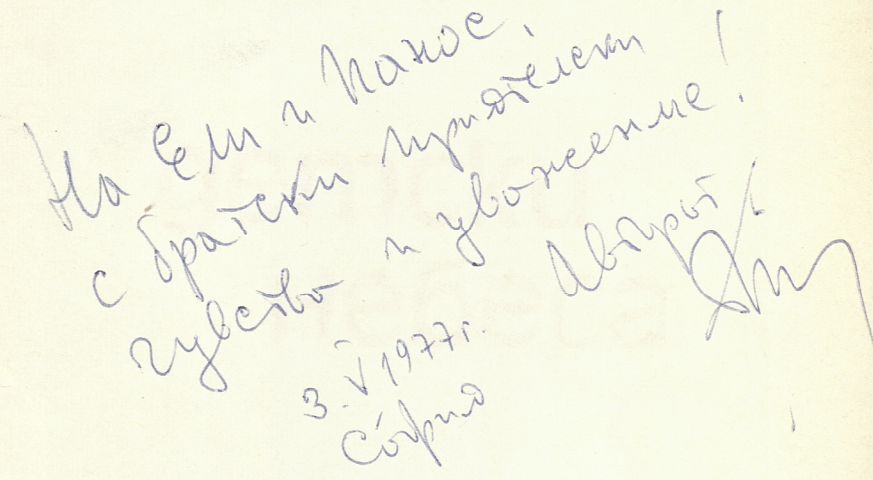 На Ели и Панос,
с братски приятелски
чувства и уважение!
Авторът
3.V 1977г.
София